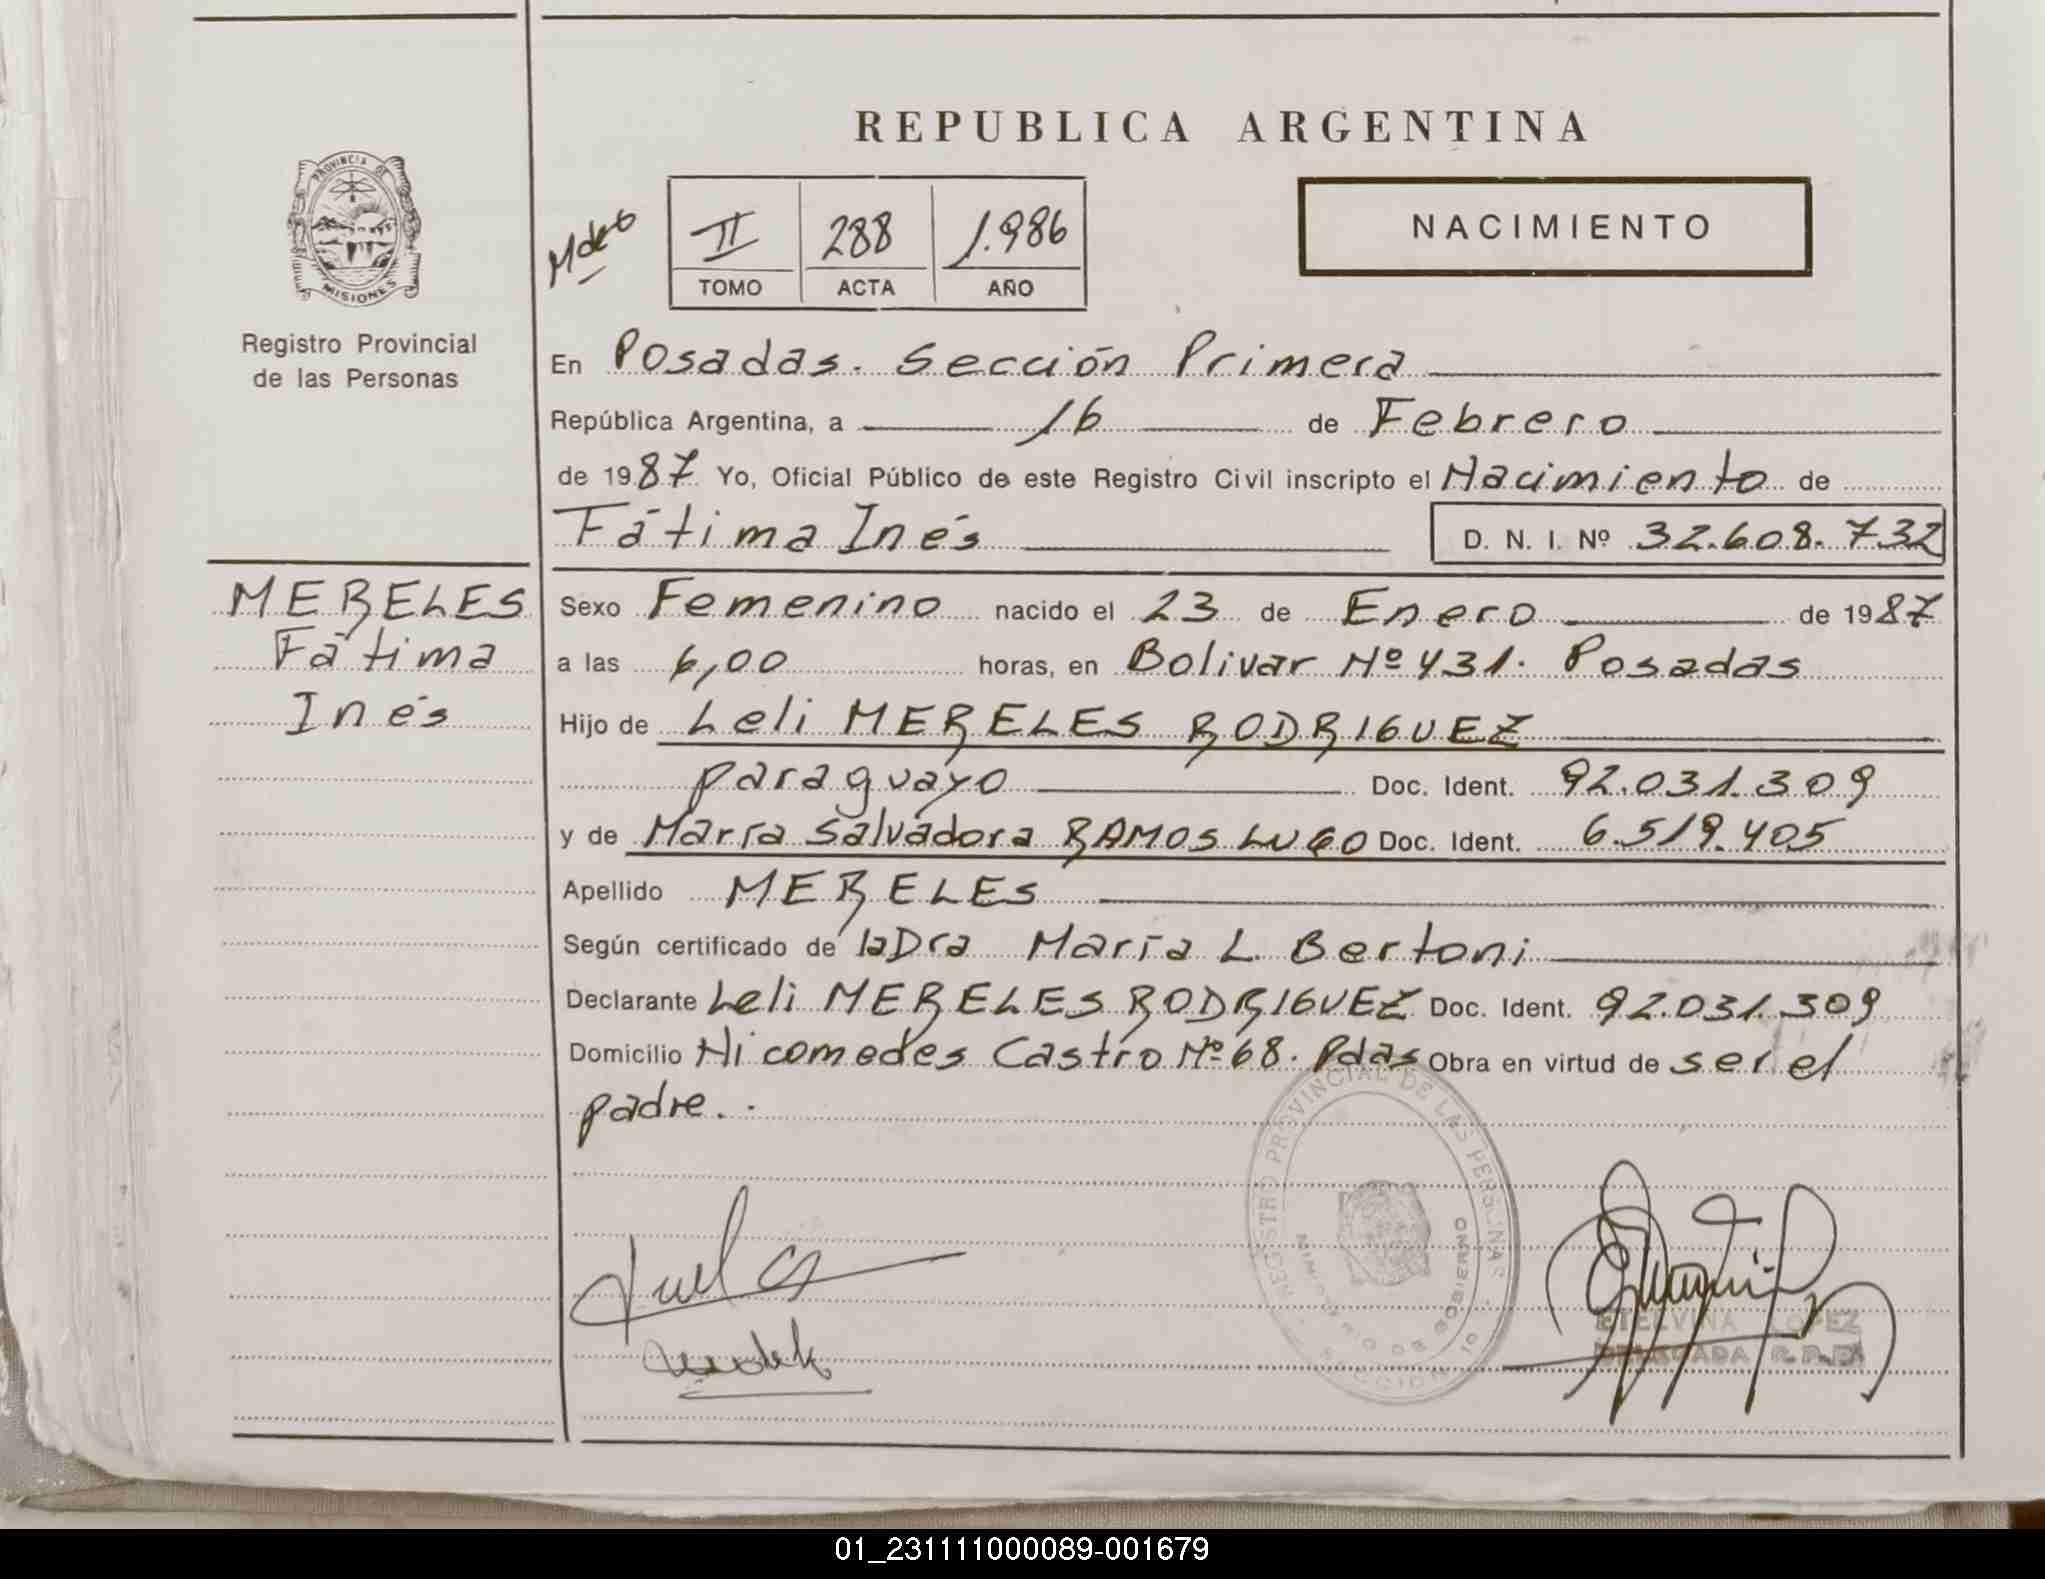 REPUBLICA ARGENTINA
PROVINCIA DE MISIONES
Registro Provincial
de las Personas
II 288 1.986
TOMO ACTA AÑO
NACIMIENTO
En Posadas. Sección Primera
República Argentina, a 16 de Febrero
de 1987 Yo, Oficial Público de este Registro Civil inscripto el Nacimiento de
Fátima Inés D. N. I. Nº 32.608.732
MERELES
Fátima
Inés
Sexo Femenino nacido el 23 de Enero de 1987
a las 6,00 horas, en Bolivar Nº 431. Posadas
Hijo de Leli MERELES RODRIGUEZ
paraguayo Doc. Ident. 92.031.309
y de María Salvadora RAMOS LUGO Doc. Ident. 6.519.405
Apellido MERELES
Según certificado de la Dra María L. Bertoni
Declarante Leli MERELES RODRIGUEZ Doc. Ident. 92.031.309
Domicilio Nicomedes Castro Nº 68. Pdas Obra en virtud de ser el
padre.
REGISTRO PROVINCIAL DE LAS PERSONAS
MINISTERIO DE GOBIERNO
SECCION 1ª
ETELVINA LOPEZ
DELEGADA R.P.P.
01_231111000089-001679